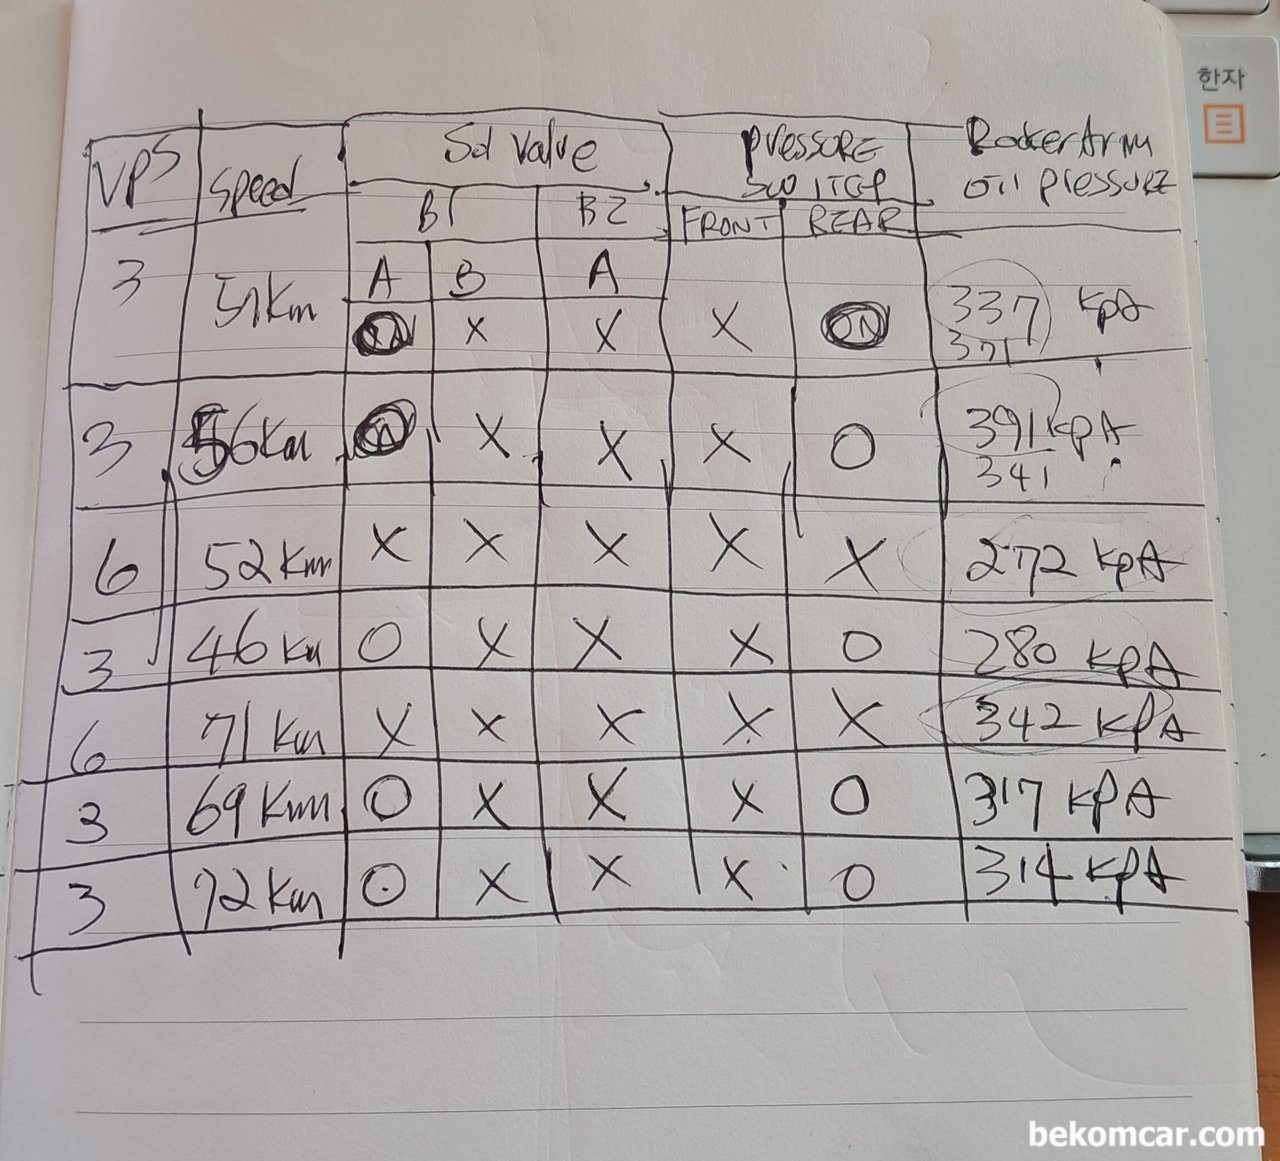 VPS Speed Sol Valve PRESSURE SWITCH Rocker Arm Oil PRESSURE
B1 B2 FRONT REAR
A B A
3 51Km ON X X X ON 337 KPA
371
3 56Km ON X X X O 391 KPA
341
6 52Km X X X X X 272 KPA
3 46Km O X X X O 280 KPA
6 71Km X X X X X 342 KPA
3 69Km O X X X O 317 KPA
3 72Km O X X X O 314 KPA
한자
bekomcar.com